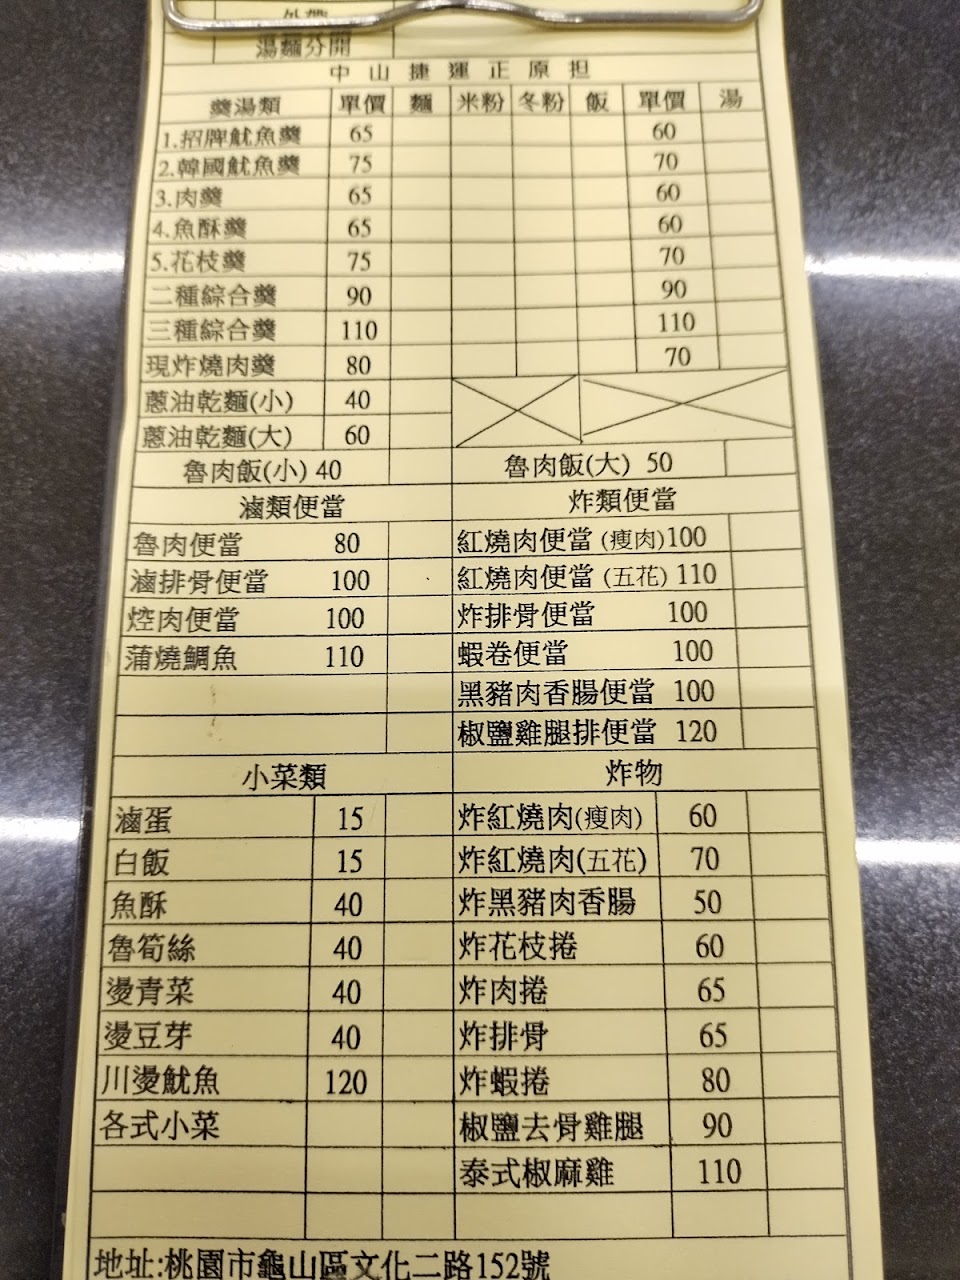 外帶
湯麵分開
中山捷運正原担
羹湯類 單價 麵 米粉 冬粉 飯 單價 湯
1.招牌魷魚羹 65 60
2.韓國魷魚羹 75 70
3.肉羹 65 60
4.魚酥羹 65 60
5.花枝羹 75 70
二種綜合羹 90 90
三種綜合羹 110 110
現炸燒肉羹 80 70
蔥油乾麵(小) 40
蔥油乾麵(大) 60
魯肉飯(小) 40 魯肉飯(大) 50
滷類便當 炸類便當
魯肉便當 80 紅燒肉便當 (瘦肉)100
滷排骨便當 100 紅燒肉便當 (五花) 110
焢肉便當 100 炸排骨便當 100
蒲燒鯛魚 110 蝦卷便當 100
黑豬肉香腸便當 100
椒鹽雞腿排便當 120
小菜類 炸物
滷蛋 15 炸紅燒肉(瘦肉) 60
白飯 15 炸紅燒肉(五花) 70
魚酥 40 炸黑豬肉香腸 50
魯筍絲 40 炸花枝捲 60
燙青菜 40 炸肉捲 65
燙豆芽 40 炸排骨 65
川燙魷魚 120 炸蝦捲 80
各式小菜 椒鹽去骨雞腿 90
泰式椒麻雞 110
地址:桃園市龜山區文化二路152號